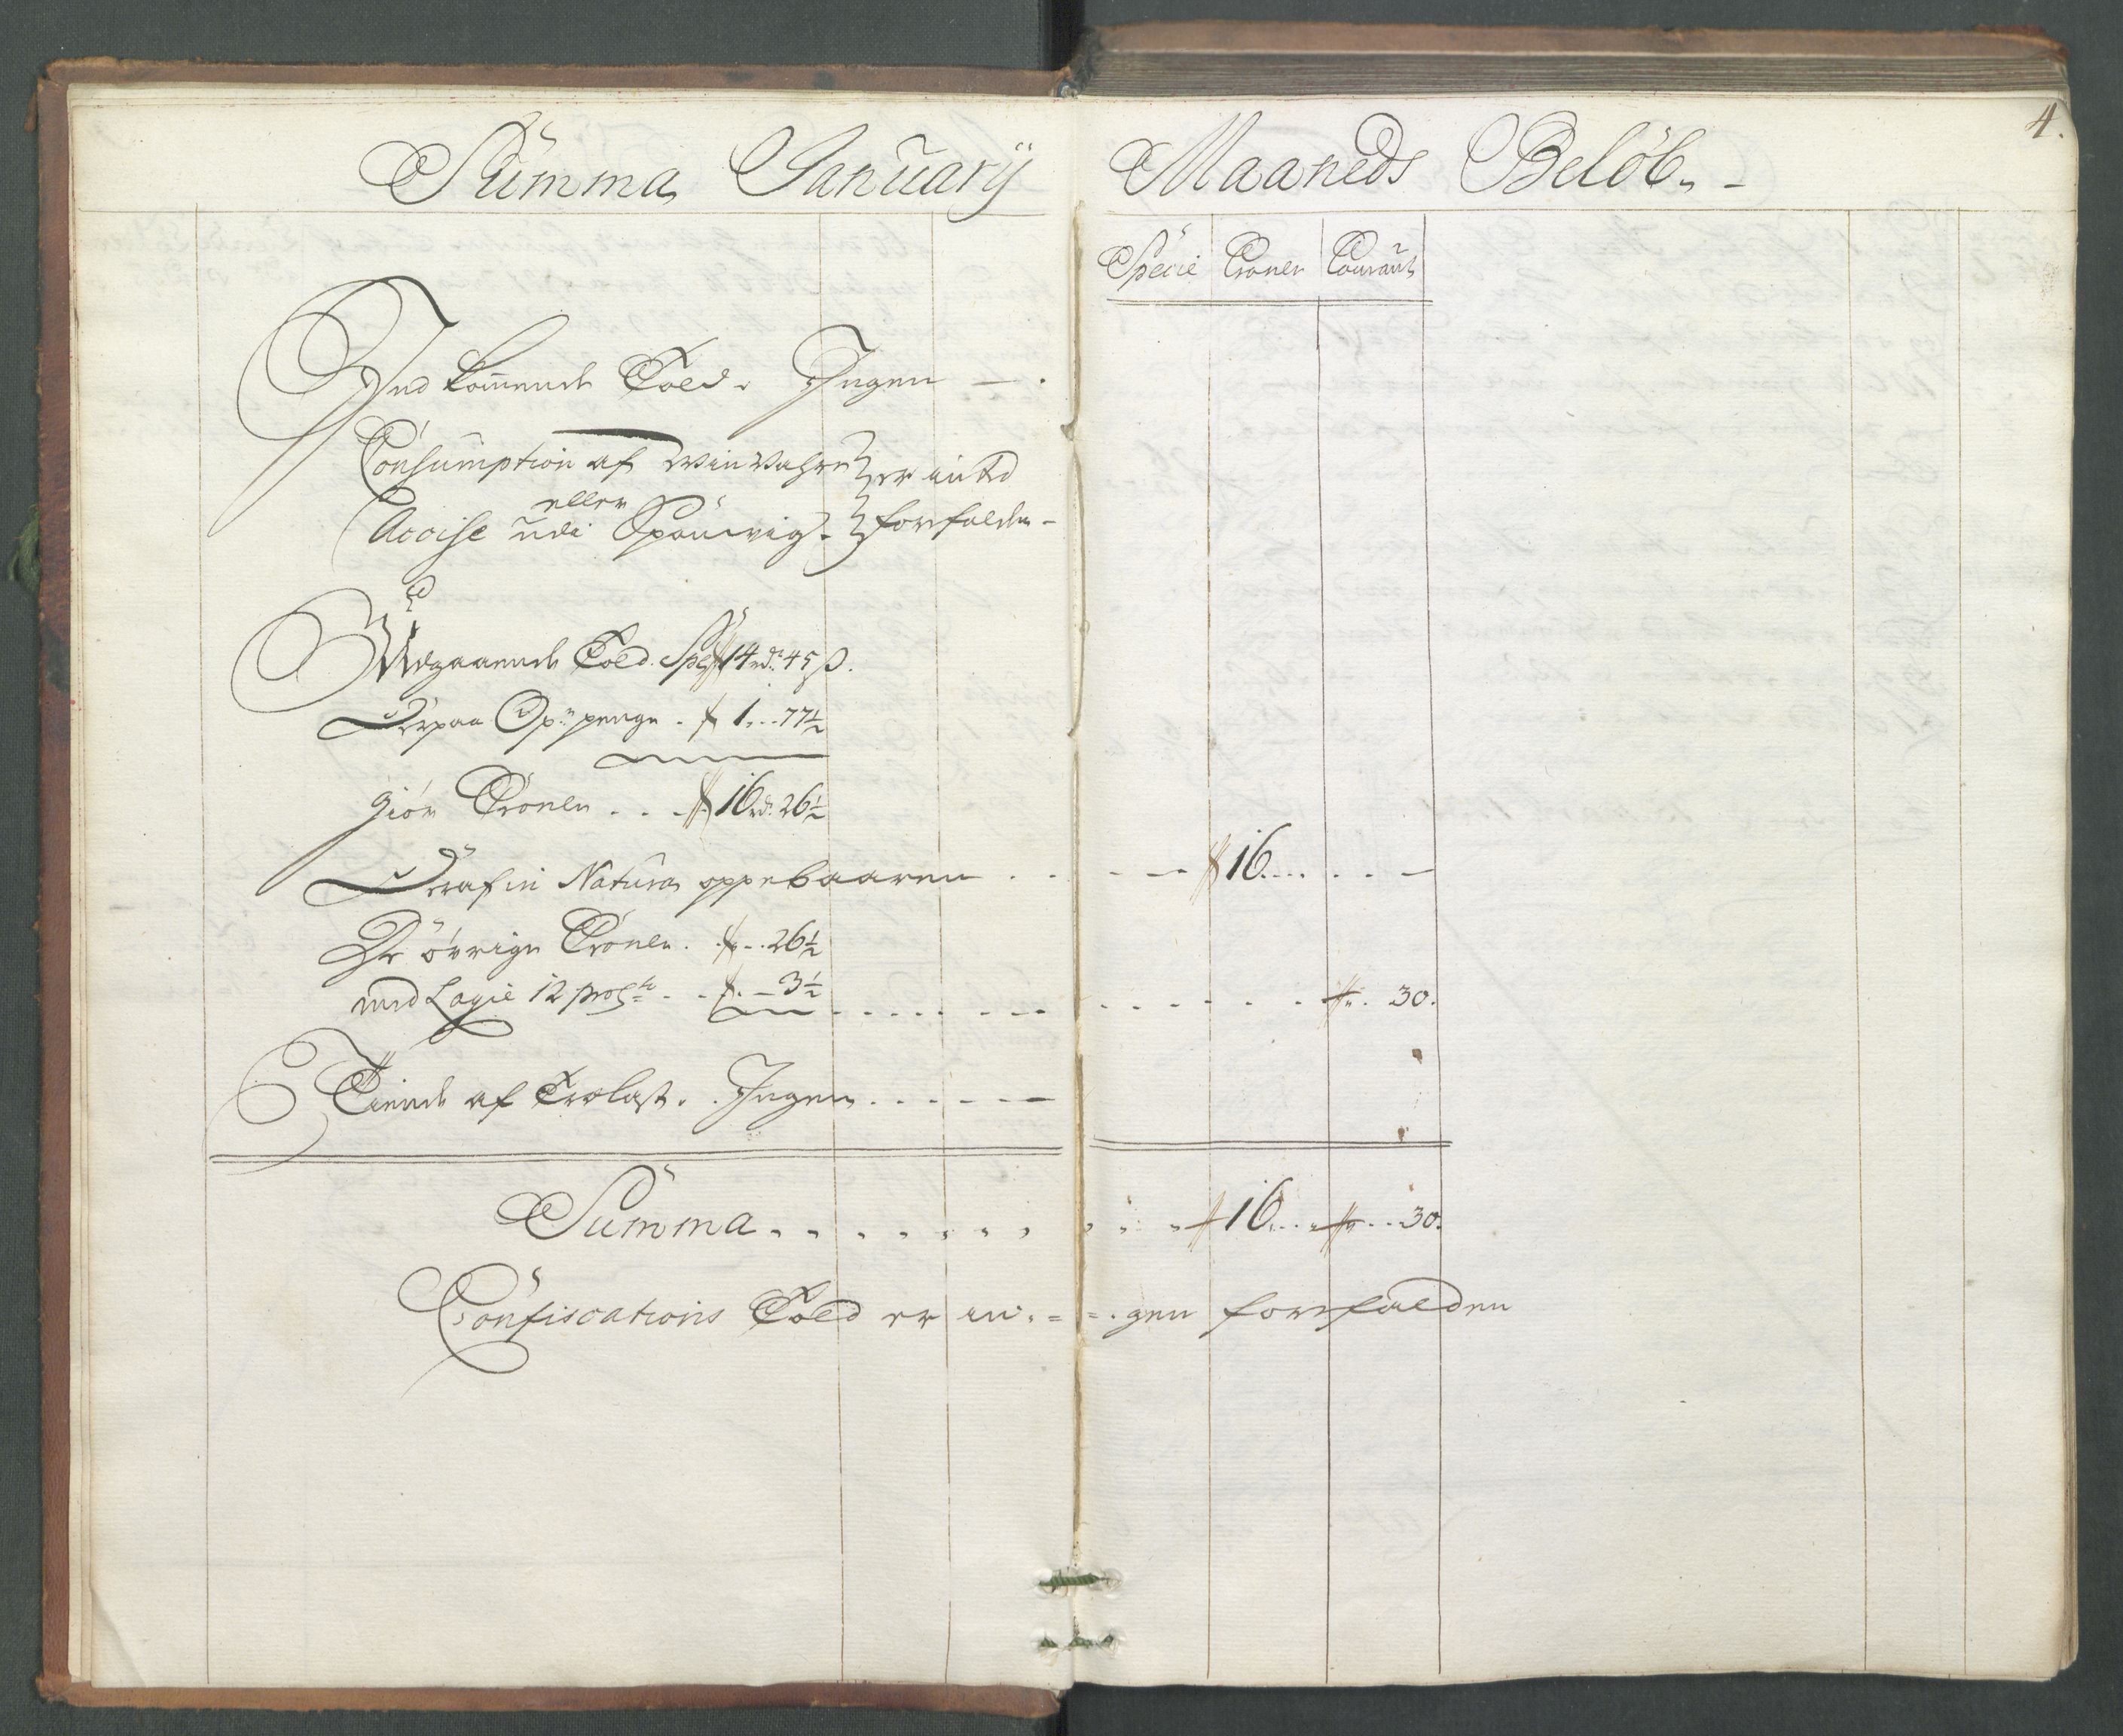 4.
Summa Januarij Maaneds Beløb. -
Specie Croner Courant
Indkommende Told. Ingen - .
Consumption af Win Vahre er intd
eller
Accise udi Spönwig. forfalden -
Udgaaende Told. Spe 14 rd 45 ß.
Derpaa Op: penge . 1 .. 77 1/2
Giør Croner . . . 16 rd 26 1/2
Deraf in Natura oppebaaren . . - - 16 . . . . -
De øvrige Croner . - . . 26 1/2
med Lagie 12 proCto . . - 3 1/2 . . . . . - - - . . - - - . . 30.
Tiende af Trælast. . Ingen . . . . - -
Summa . . . . . . . . . . . 16 . . . . . . 30.
Confiscations Told er in - = - - gen forfalden